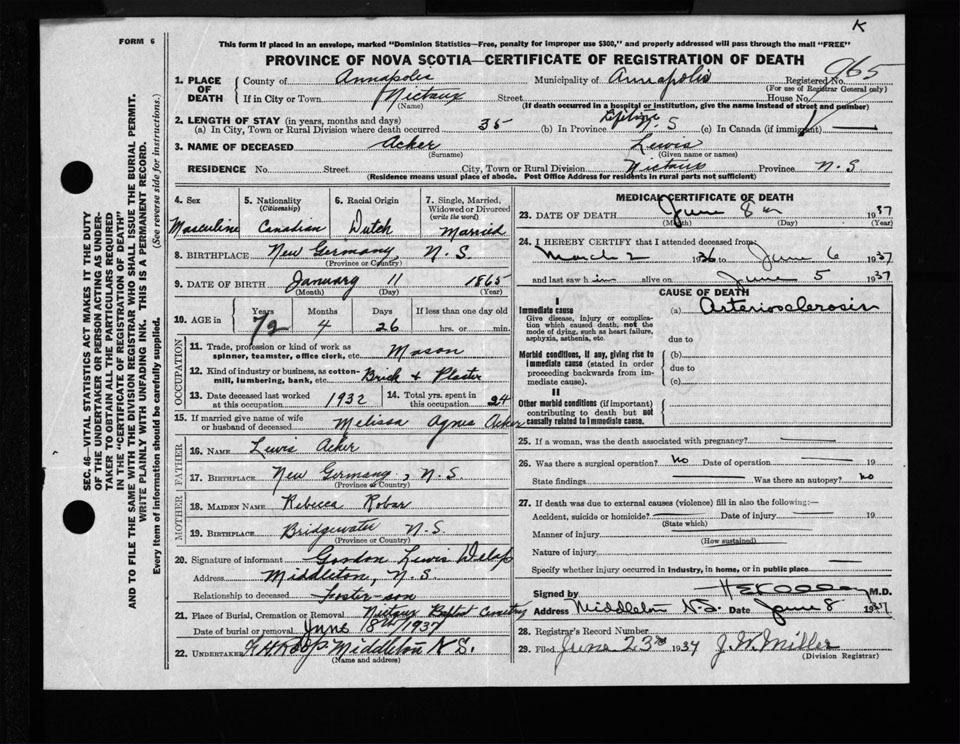 K
FORM 6
This form if placed in an envelope, marked "Dominion Statistics—Free, penalty for improper use $300," and properly addressed will pass through the mail "FREE"
PROVINCE OF NOVA SCOTIA—CERTIFICATE OF REGISTRATION OF DEATH
1. PLACE OF DEATH County of Annapolis Municipality of Annapolis Registered No. 965
(For use of Registrar General only)
If in City or Town Nictaux Street House No.
(Name) (If death occurred in a hospital or institution, give the name instead of street and number)
2. LENGTH OF STAY (in years, months and days)
(a) In City, Town or Rural Division where death occurred 35 (b) In Province Lifetime N.S (c) In Canada (if immigrant)
3. NAME OF DECEASED Acker Lewis
(Surname) (Given name or names)
RESIDENCE No. Street City, Town or Rural Division Nictaux Province N.S
(Residence means usual place of abode. Post Office Address for residents in rural parts not sufficient)
4. Sex 5. Nationality (Citizenship) 6. Racial Origin 7. Single, Married, Widowed or Divorced (write the word)
Masculine Canadian Dutch Married
8. BIRTHPLACE New Germany, N.S.
(Province or Country)
9. DATE OF BIRTH January 11 1865
(Month) (Day) (Year)
10. AGE in Years Months Days If less than one day old
72 4 26 hrs. or min.
OCCUPATION
11. Trade, profession or kind of work as spinner, teamster, office clerk, etc. Mason
12. Kind of industry or business, as cotton-mill, lumbering, bank, etc. Brick & Plaster
13. Date deceased last worked at this occupation 1932 14. Total yrs. spent in this occupation 24
15. If married give name of wife or husband of deceased Melissa Agnes Acker
FATHER
16. NAME Lewis Acker
17. BIRTHPLACE New Germany, N.S.
(Province or Country)
MOTHER
18. MAIDEN NAME Rebecca Robar
19. BIRTHPLACE Bridgewater N.S
(Province or Country)
20. Signature of informant Gordon Lewis Delap
Address Middleton, N.S.
Relationship to deceased foster-son
21. Place of Burial, Cremation or Removal Nictaux Baptist Cemetery
Date of burial or removal June 8th/1937
22. UNDERTAKER Middleton N.S.
(Name and address)
MEDICAL CERTIFICATE OF DEATH
23. DATE OF DEATH June 8th 1937
(Month) (Day) (Year)
24. I HEREBY CERTIFY that I attended deceased from:
March 2 1936 to June 6 1937
and last saw him alive on June 5 1937
CAUSE OF DEATH
I
Immediate cause (a) Arteriosclerosis
Give disease, injury or complication which caused death, not the mode of dying, such as heart failure, asphyxia, asthenia, etc.
due to
Morbid conditions, if any, giving rise to immediate cause (stated in order proceeding backwards from immediate cause).
(b)
due to
(c)
II
Other morbid conditions (if important) contributing to death but not causally related to immediate cause.
25. If a woman, was the death associated with pregnancy?
26. Was there a surgical operation? No Date of operation 19
State findings Was there an autopsy? No
27. If death was due to external causes (violence) fill in also the following:—
Accident, suicide or homicide? Date of injury 19
(State which)
Manner of injury
(How sustained)
Nature of injury
Specify whether injury occurred in industry, in home, or in public place
Signed by M.D.
Address Middleton N.S. Date June 8 1937
28. Registrar's Record Number
29. Filed June 23rd 1937 J.W. Miller
(Division Registrar)
SEC. 46—VITAL STATISTICS ACT MAKES IT THE DUTY
OF THE UNDERTAKER OR PERSON ACTING AS UNDERTAKER TO OBTAIN ALL THE PARTICULARS REQUIRED
IN THE "CERTIFICATE OF REGISTRATION OF DEATH"
AND TO FILE THE SAME WITH THE DIVISION REGISTRAR WHO SHALL ISSUE THE BURIAL PERMIT.
WRITE PLAINLY WITH UNFADING INK. THIS IS A PERMANENT RECORD.
Every item of information should be carefully supplied. (See reverse side for instructions.)